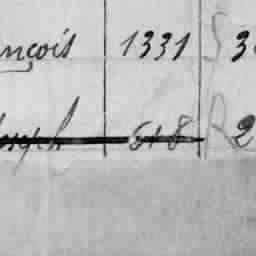 nçois 1331 S 3
oseph 618 R 2